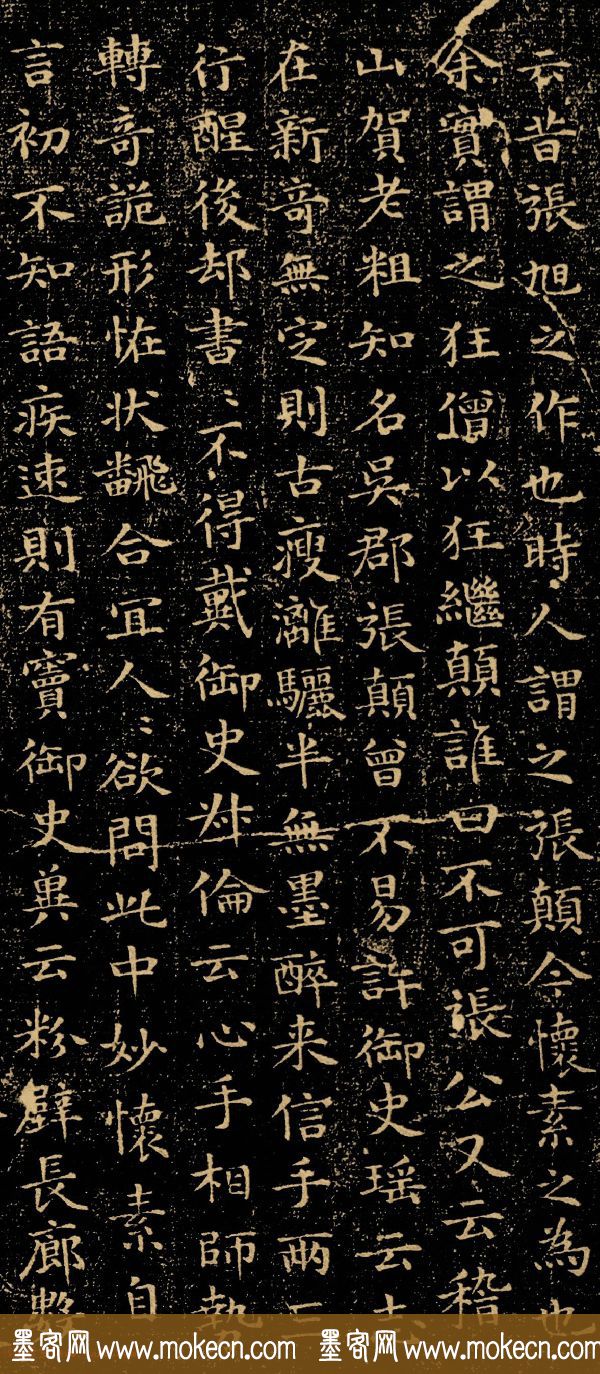 云昔張旭之作也時人謂之張顛今懷素之為也
余實謂之狂僧以狂繼顛誰曰不可張公又云稽
山賀老粗知名吳郡張顛曾不易許御史瑤云志
在新奇無定則古瘦灕驪半無墨醉来信手兩三
行醒後却書〻不得戴御史叔倫云心手相師勢
轉奇詭形恠状飜合宜人〻欲問此中妙懷素自
言初不知語疾速則有竇御史兾云粉壁長廊數
墨客网 www.mokecn.com 墨客网 www.mokecn.com